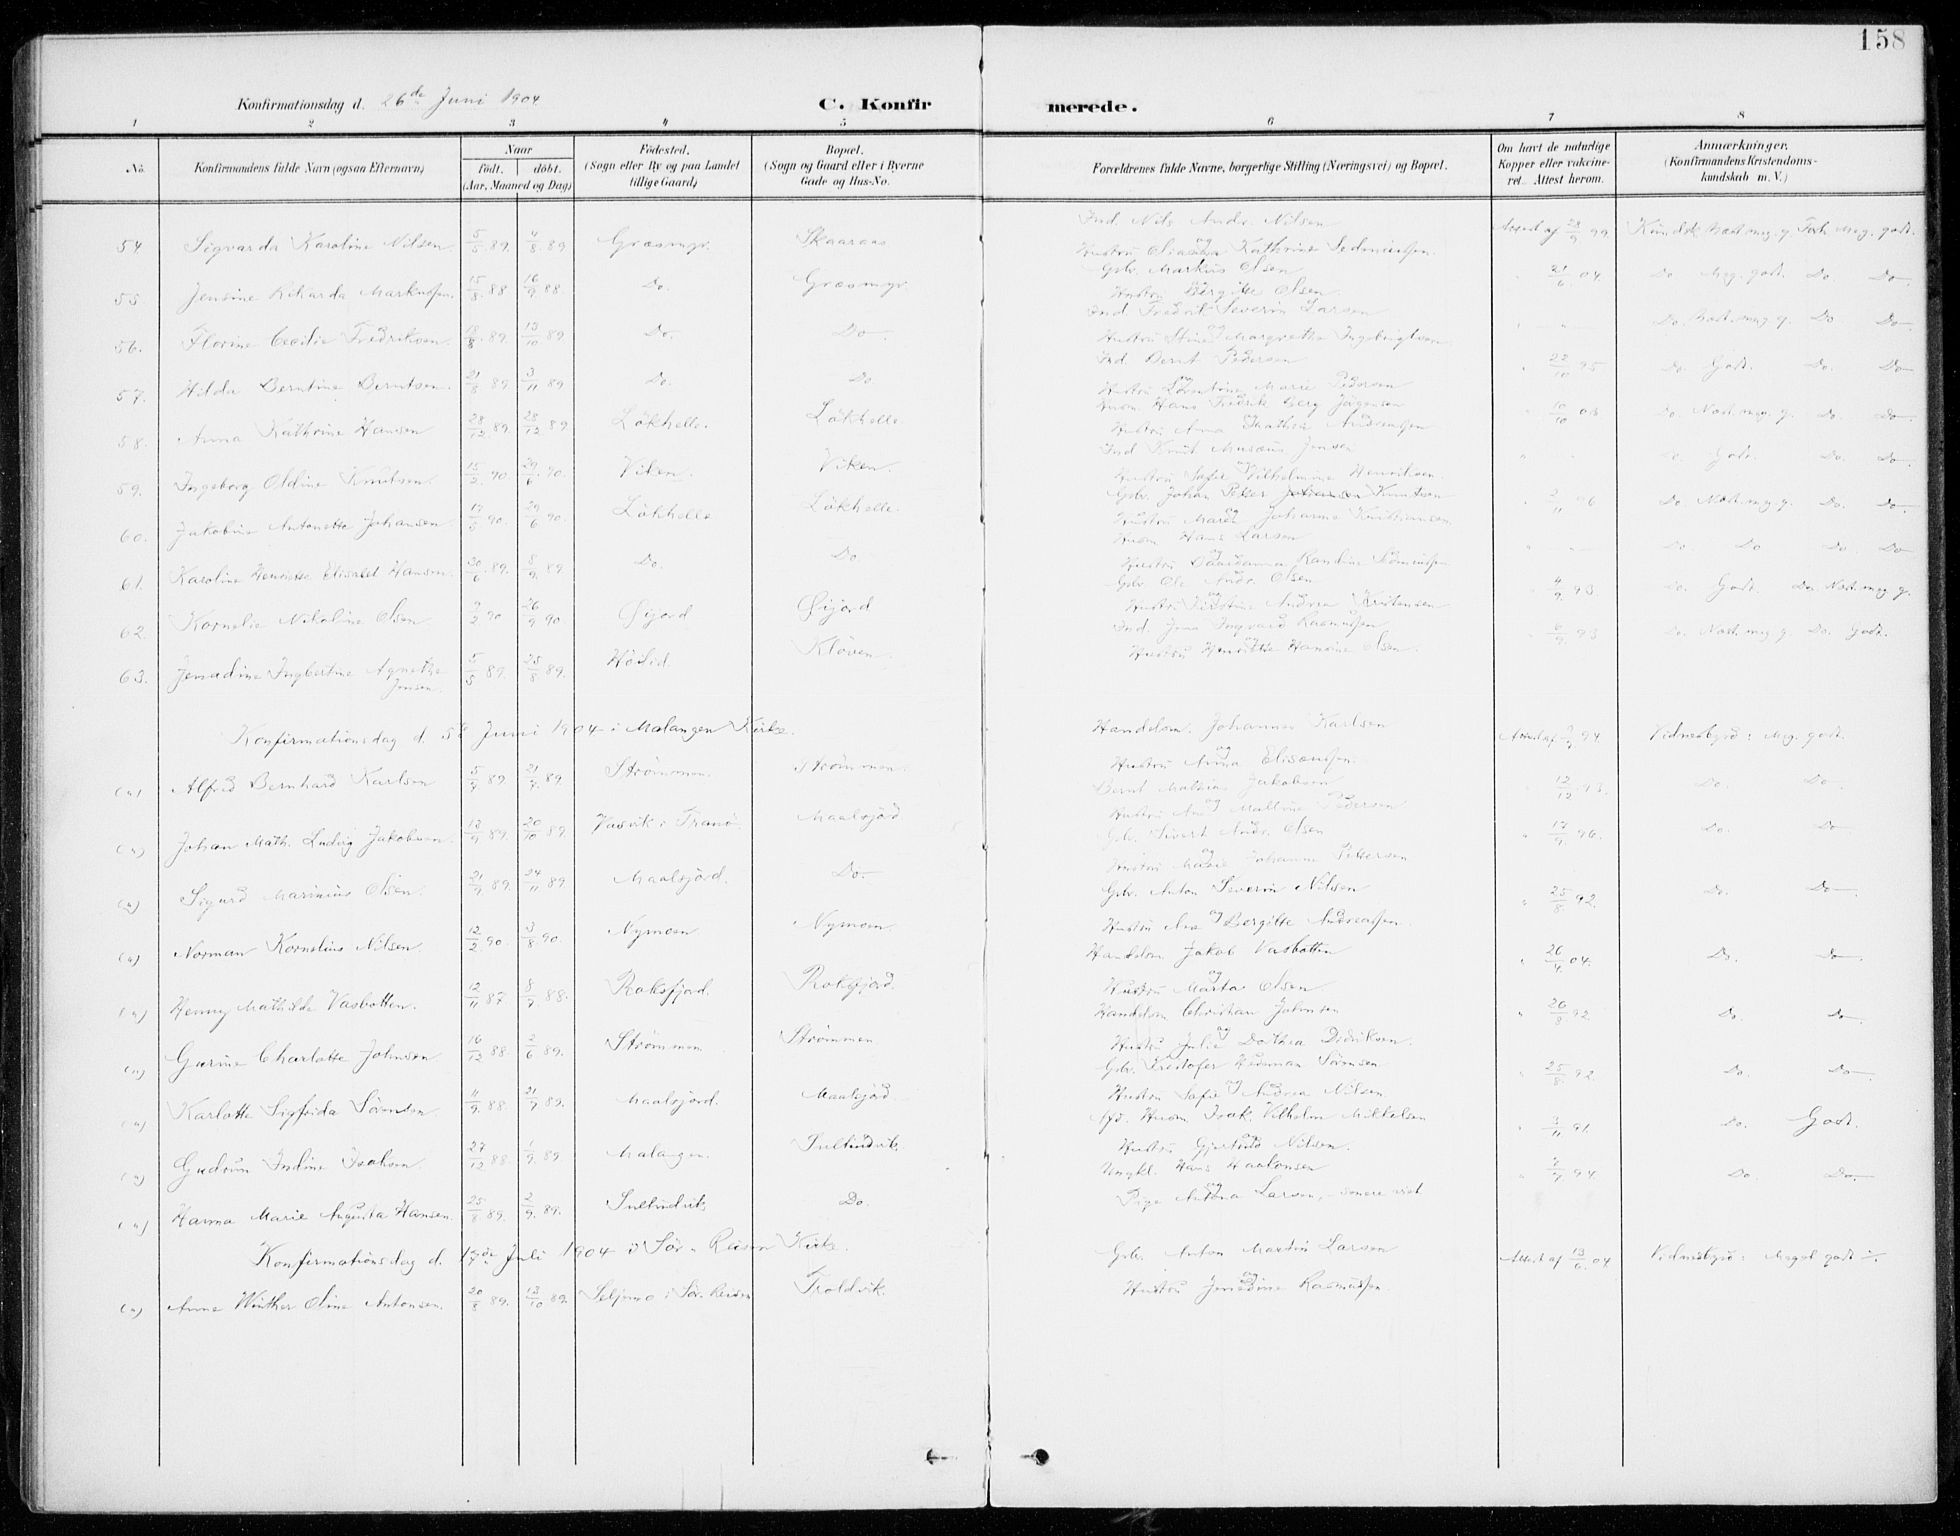 158
Konfirmationsdag d. 26de Juni 1904
C. Konfirmerede.
1 2 3 4 5 6 7 8
No. Konfirmandens fulde Navn (ogsaa Efternavn) Naar født. døbt. (Aar, Maaned og Dag) Fødested. (Sogn eller By og paa Landet tillige Gaard) Bopæl. (Sogn og Gaard eller i Byerne Gade og Hus-No. Forældrenes fulde Navne, borgerlige Stilling (Næringsvei) og Bopæl. Om havt de naturlige Kopper eller vakcineret. Attest herom. Anmærkninger. (Konfirmandens Kristendomskundskab m. V.)
Ind. Nils Andr. Nilsen
54. Sigvarda Karoline Nilsen 5/5 89 4/8 89 Græsmyr. Skaaraas Attest af 28/9 99
Hustru Kathrine
Gbr. Markus Olsen
55. Jensine Rikarda Markussen 15/8 88 16/9 88 Do. Græsmyr. 21/6 04 Do. Meg. godt. Do. Do
Hustru Bergitte Olsen.
Ind. Fredrik Severin Larsen
56. Florine Cecilie Fredriksen 18/8 89 13/10 89 Do. Do Do. Do. Do
Hustru Stine Margrethe Ingebrigtsen
Ind. Bernt Pedersen
57. Hilda Berntine Berntsen. 21/8 89 3/11 89 Do. Do 22/10 95 Do. Godt. Do. Do
Hustru Marie Pedersen
Husm. Hans Fredrik Berg Jørgensen
58. Anna Kathrine Hansen 28/12 89 Løkhelle. Løkhelle Do. Næst. meg. g. Do. Do
Hustru Anna Mathea Andreassen
Ind. Knut Musæus Jensen
59. Ingeborg Oldine Knutsen. 15/2 90 29/6 90. Viken. Viken. Do. Godt. Do. Do
Hustru Sofie Vilhelmine Henriksen.
Gbr. Johan Peter Johansen Knutsen
60. Jakobine Antonette Johansen 17/5 90. 29/6 90. Løkhelle Løkhelle. 2/11 96 Do. Næst. meg. g. Do. Do
Hustru Maren Johanna Kristiansen.
Husm. Hans Larsen
61. Karoline Henrette Elisabet Hansen. 30/6 89. 8/9 89 Do. Do. Do. Do Do. Do
Hustru Randine
Gbr. Ole Andr. Olsen
62. Kornelie Nikoline Olsen 90 90 Gisjord Gisjord 4/9 93 Do. Godt. Do. Næst. meg. g.
Hustru Kirstine Andrea Kristensen
Ind. Jens Ingvard Rasmussen
63. Jensdine Ingbertine Agnethe Jensen. 5/5 89 25/8 89. Høilid. Kløven. 6/9 93 Do. Næst. meg. g. Do. Godt.
Hustru Henrette Hansine Olsen.
Konfirmationsdag d. 5te Juni 1904 i Malangen Kirke.
Handelsm. Johannes Karlsen
(u) Alfred Bernhard Karlsen 5/7 89 21/7 89. Strømmen. Strømmen. 94 Vidnesbyrd: Meg. godt.
Hustru Anna Elisæussen.
Bernt Mathias Jakobsen
(u) Johan Math. Ludvig Jakobsen 13/9 89 20/10 89. Vasvik i Tranø Maalsjord 12/12 93. Do. Do.
Hustru Ane Maltine Pedersen
Gbr. Sivert Andr. Olsen
(u) Sigurd Marinius Olsen. 21/9 89. 24/11 89. Maalsjord. Do. 17/9 96. Do. Do
Hustru Marie Johanna Pettersen
Gbr. Anton Severin Nilsen
(u) Norman Kornelius Nilsen 12/2 90. 3/8 90. Nymoen Nymoen. 25/8 92. Do. Do
Hustru Ane Bergitte Andreassen.
Handelsm. Jakob Vasbotten
(u) Henny Mathilde Vasbotten. 12/11 87. 8/7 88. Roksfjord. Roksfjord. 26/4 04. Do. Do
Hustru Marta Olsen
Handelsm Christian Johnsen
(u) Gurine Charlotte Johnsen. 16/12 88. 2/6 89. Strømmen Strømmen 26/8 92 Do. Do
Hustru Julie Dorthea Didriksen.
Gbr. Kristofer Hedeman Sørensen.
(u) Karlotte Sigfrida Sørensen 11/9 88. 21/7 89. Maalsjord. Maalsjord. 25/8 92. Do. Do
Hustru Sofie Andrea Nilsen
Afd. Husm. Isak Vilhelm Mikkelsen
(u) Gudrun Indine Isaksen. 27/12 88. 1/9 89. Malangen. Sultindvik. 3/11 91 Do. Godt.
Hustru Gjertrud Nilsen.
Ungkl. Hans Haakonsen
(u) Hanna Marie Augusta Hansen. 25/8 89. 2/9 89. Sultindvik Do. 94. Do. Do
Pige Antona Larsen, senere viet
Konfirmationsdag d. 17de Juli 1904 i Sør-Reisen Kirke.
Gbr. Anton Martin Larsen
(u) Anne Winther Oline Antonsen. 20/8 89. 13/10 89. Seljemo i Sør-Reisen Troldvik. Attest af 13/6 04 Vidnesbyrd: Meget godt ÷.
Hustru Jensdine Rasmussen.